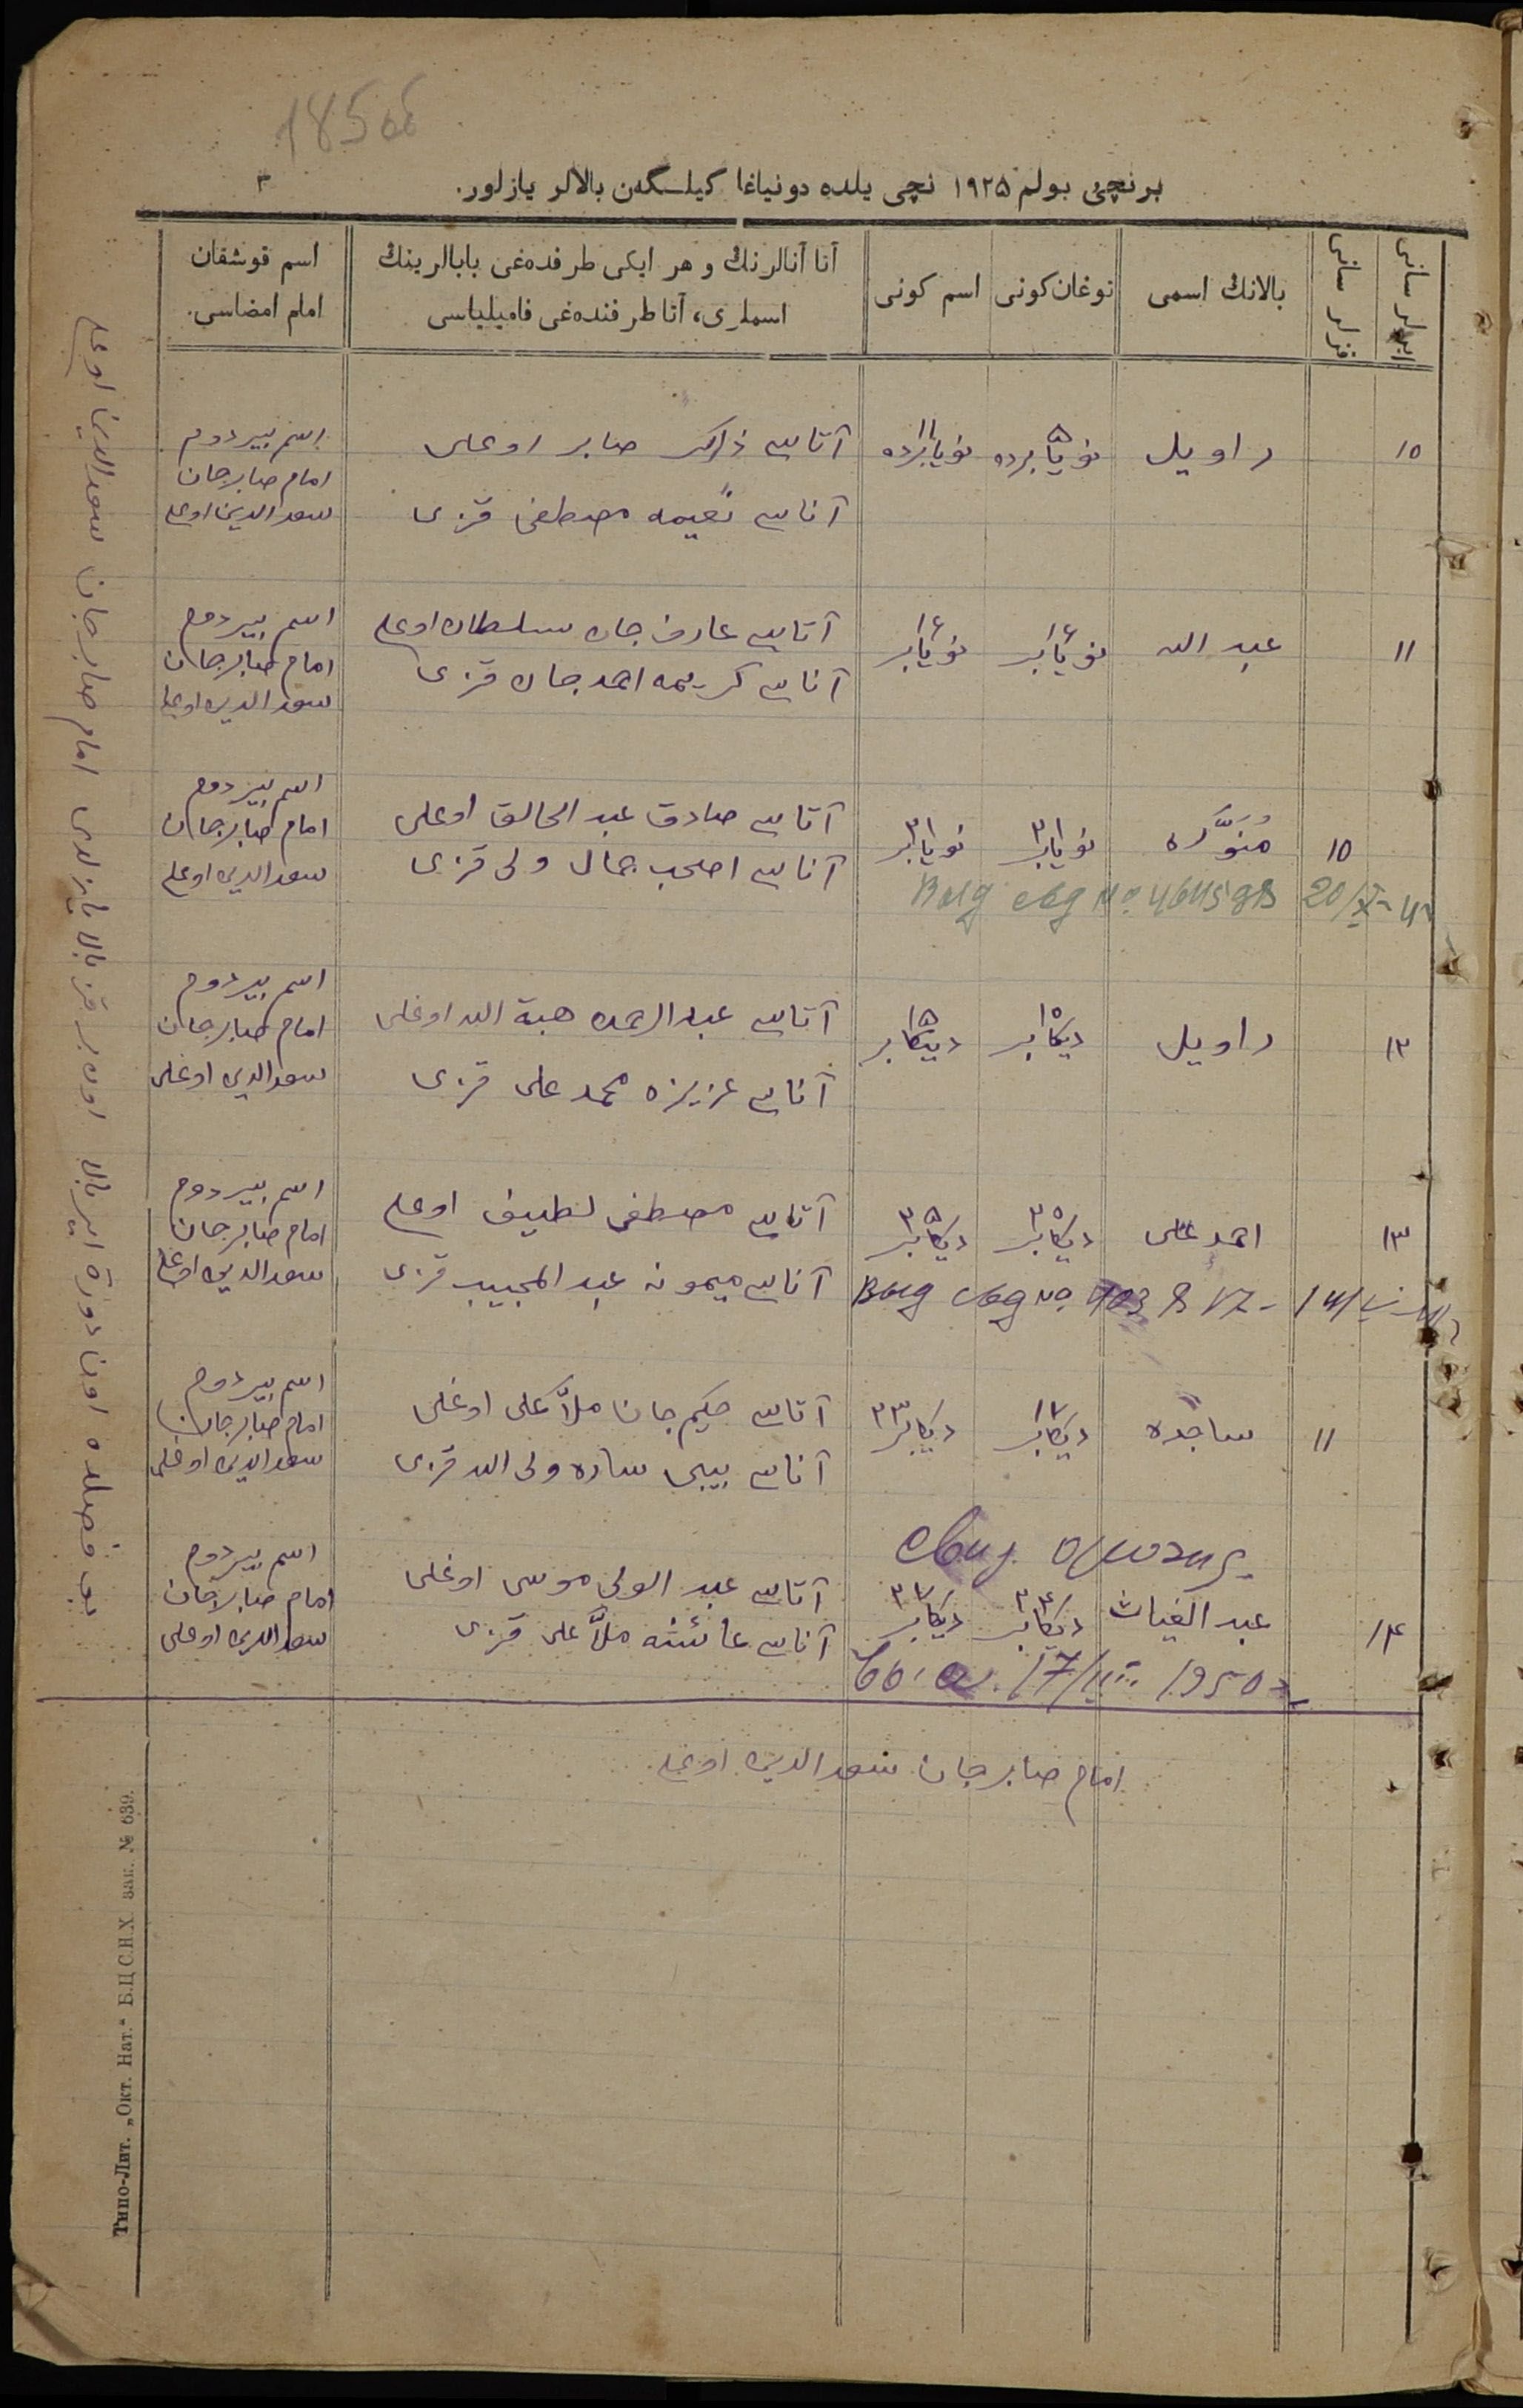 185об
برنچی بولم ۱۹۲۵ نچی یلده دونیاغا کیلگەن بالالر یازلور.
۳
ایرلر سانی
قزلر سانی
بالانڭ اسمی
توغان کونی
اسم کونی
آتا آنالرنڭ و هر ایکی طرفدەغی بابالرینڭ
اسملری، آتا طرفندەغی فامیلیاسی
اسم قوشقان
امام امضاسی.
۱۰
راویل
۵ نویابرده
۱۱ نویابرده
آتاسی ذاکر صابر اوغلی
آناسی نعیمه مصطفی قزی
اسم بیردوم
امام صابرجان
سعدالدین اوغلی
۱۱
عبد الله
۱۶ نویابر
۱۶ نویابر
آتاسی عارف جان سلطان اوغلی
آناسی کریمه احمدجان قزی
اسم بیردوم
امام صابرجان
سعدالدین اوغلی
۱۰
مُنَوَّره
۲۱ نویابر
نویابر
آتاسی صادق عبد الخالق اوغلی
آناسی اصحب جمال ولی قزی
اسم بیردوم
امام صابرجان
سعدالدین اوغلی
۱۲
راویل
۱۵ دیکابر
۱۵ دیکابر
آتاسی عبد الرحمن هبة الله اوغلی
آناسی عزیزه محمد علی قزی
اسم بیردوم
امام صابرجان
سعدالدین اوغلی
۱۳
احمد علی
دیکابر
۲۵ دیکابر
آتاسی مصطفی لطیف اوغلی
آناسی میمونه عبد المجیب قزی
اسم بیردوم
امام صابرجان
سعدالدین اوغلی
۱۱
ساجده
۱۷ دیکابر
۲۳ دیکابر
آتاسی حکیم جان ملا علی اوغلی
آناسی بیبی ساره ولی الله قزی
اسم بیردوم
امام صابرجان
سعدالدین اوغلی
۱۴
عبد الغیاث
۲۴ دیکابر
۲۷ دیکابر
17/III 1950г
آتاسی عبد الولی موسی اوغلی
آناسی عائشه ملا علی قزی
اسم بیردوم
امام صابرجان
سعدالدین اوغلی
امام صابرجان سعدالدین اوغلی
بو فصلده اون دورة ایر بالا اون بر قز بالا یازلدی امام صابرجان سعدالدین اوغلی
Типо-Лит. „Окт. Нат.“ Б.Ц.С.Н.Х. зак. № 639.